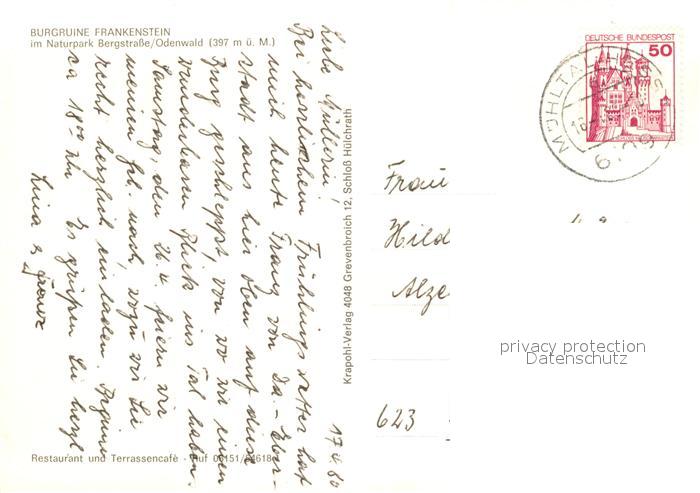 BURGRUINE FRANKENSTEIN
im Naturpark Bergstraße/Odenwald (397 m ü. M.)
17.4.80
Liebe Müllerin!
Bei herrlichem Frühlingswetter hat
mich heute Franz von Da-Eber-
stadt aus hier oben auf diese
Burg geschleppt, von wo wir einen
wunderbaren Blick ins Tal haben.
Samstag, den 26.4. feiern wir
meinen Geb. nach, wozu wir Sie
recht herzlich einladen. Beginn
ca 18.00 Uhr Es grüßen Sie herzl
Lina & Franz
Restaurant und Terrassencafé - Ruf 06151/54618
Krapohl-Verlag 4048 Grevenbroich 12, Schloß Hülchrath
DEUTSCHE BUNDESPOST
50
MÜHLTAL
6109
Frau
Hild
Alze
623
privacy protection
Datenschutz